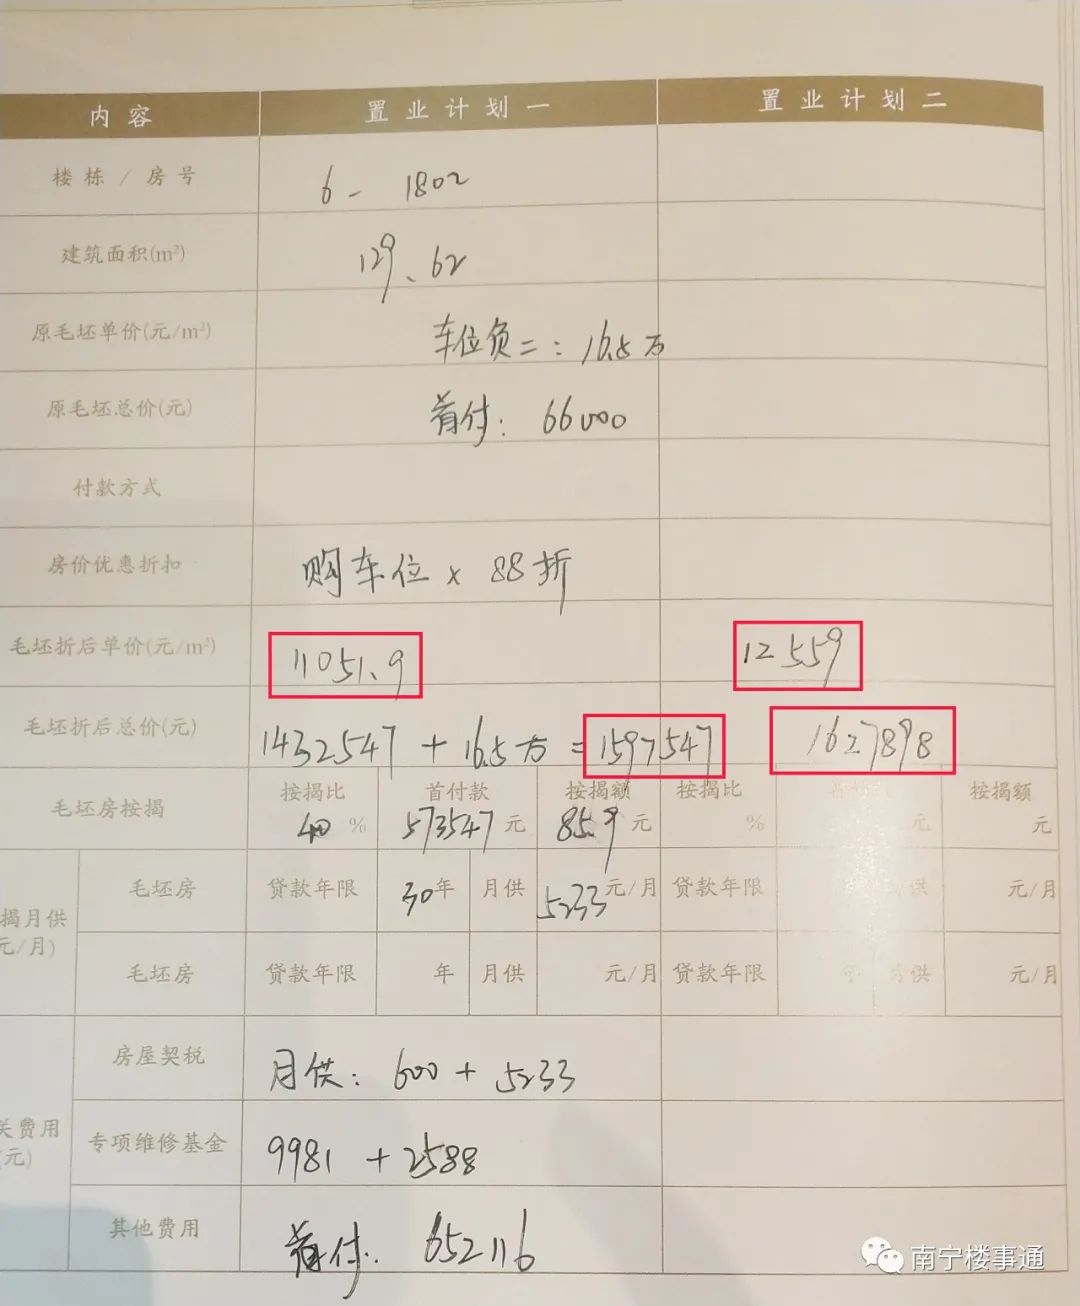 内容 置业计划一 置业计划二
楼栋/房号 6-1802
建筑面积(m²) 129.62
原毛坯单价(元/m²) 车位负二:16.5万
原毛坯总价(元) 首付:66000
付款方式
房价优惠折扣 购车位x88折
毛坯折后单价(元/m²) 11051.9 12559
毛坯折后总价(元) 1432547+16.5万=1597547 1627898
毛坯房按揭 按揭比 40% 首付款 573547元 按揭额 85.9元 按揭比 % 元 按揭额 元
揭月供
元/月)
毛坯房 贷款年限 30年 月供 5233元/月 贷款年限 供 元/月
毛坯房 贷款年限 年 月供 元/月 贷款年限 年 月供 元/月
关费用
元)
房屋契税 月供:600+5233
专项维修基金 9981+2588
其他费用 首付:652116
南宁楼事通